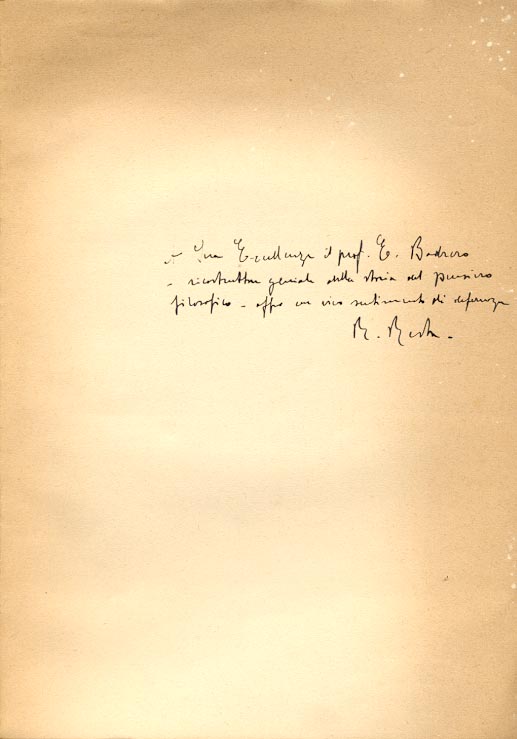 A Sua Eccellenza il prof. E. Bodrero
- ricostruttore geniale della storia del pensiero
filosofico - offro con vivo sentimento di deferenza